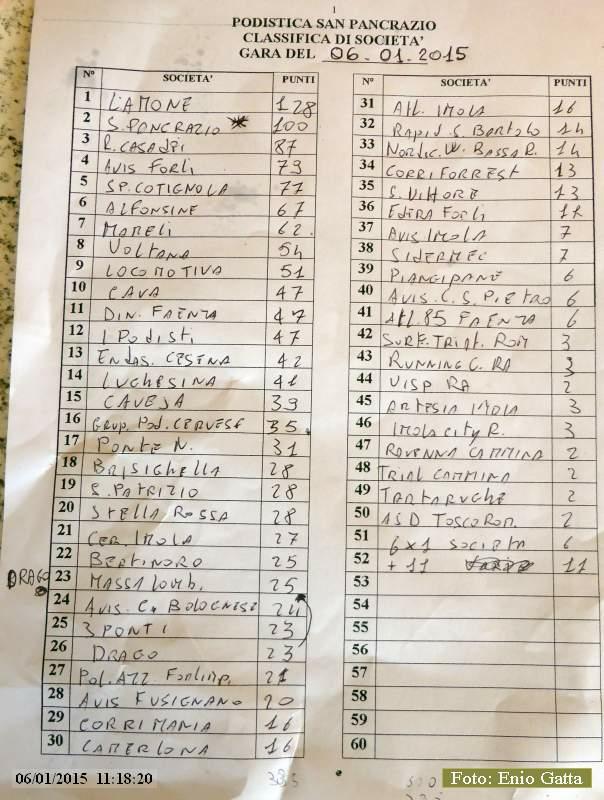 1
PODISTICA SAN PANCRAZIO
CLASSIFICA DI SOCIETA'
GARA DEL 06.01.2015
N° SOCIETA' PUNTI
1 L'AMONE 128
2 S. PANCRAZIO 100
3 R. CASADEI 87
4 AVIS FORLI 79
5 SP. COTIGNOLA 77
6 ALFONSINE 67
7 MAMELI 62
8 VOLTANA 54
9 LOCOMOTIVA 51
10 CAVA 47
11 DIN. FAENZA 47
12 I PODISTI 47
13 ENDAS. CESENA 42
14 LUGHESINA 41
15 CAVEJA 39
16 GRUP. POD. CERVESE 35
17 PONTE N. 31
18 BRISIGHELLA 28
19 S. PATRIZIO 28
20 STELLA ROSSA 28
21 CER. IMOLA 27
22 BERTINORO 25
DRAGO 23 MASSA LOMB. 25
24 AVIS. C. BOLOGNESE 24
25 3 PONTI 23
26 DRAGO 23
27 POL. AZZ. 21
28 AVIS FUSIGNANO 20
29 CORRIMANIA 16
30 CAMERLONA 16
N° SOCIETA' PUNTI
31 ATL. IMOLA 16
32 RAPID S. BARTOLO 14
33 NORDIC. W. BASSA R. 14
34 CORRIFORREST 13
35 S. VITTORE 13
36 EDERA FORLI
37 AVIS IMOLA 7
38 SIDERMEC 7
39 PIANGIPANE 6
40 AVIS. C. S. PIETRO 6
41 ATL. 85 FAENZA 6
42 SURF. TRIAT. ROM 3
43 RUNNING C. RA 3
44 UISP RA 2
45 ARTESIA IMOLA 3
46 IMOLA CITY R. 3
47 RAVENNA CAMMINA 2
48 TRIAL CAMMINA 2
49 TARTARUGHE 2
50 ASD TOSCOROM. 2
51 6x1 SOCIETA 6
52 + 11 11
53
54
55
56
57
58
59
60
06/01/2015 11:18:20
Foto: Enio Gatta